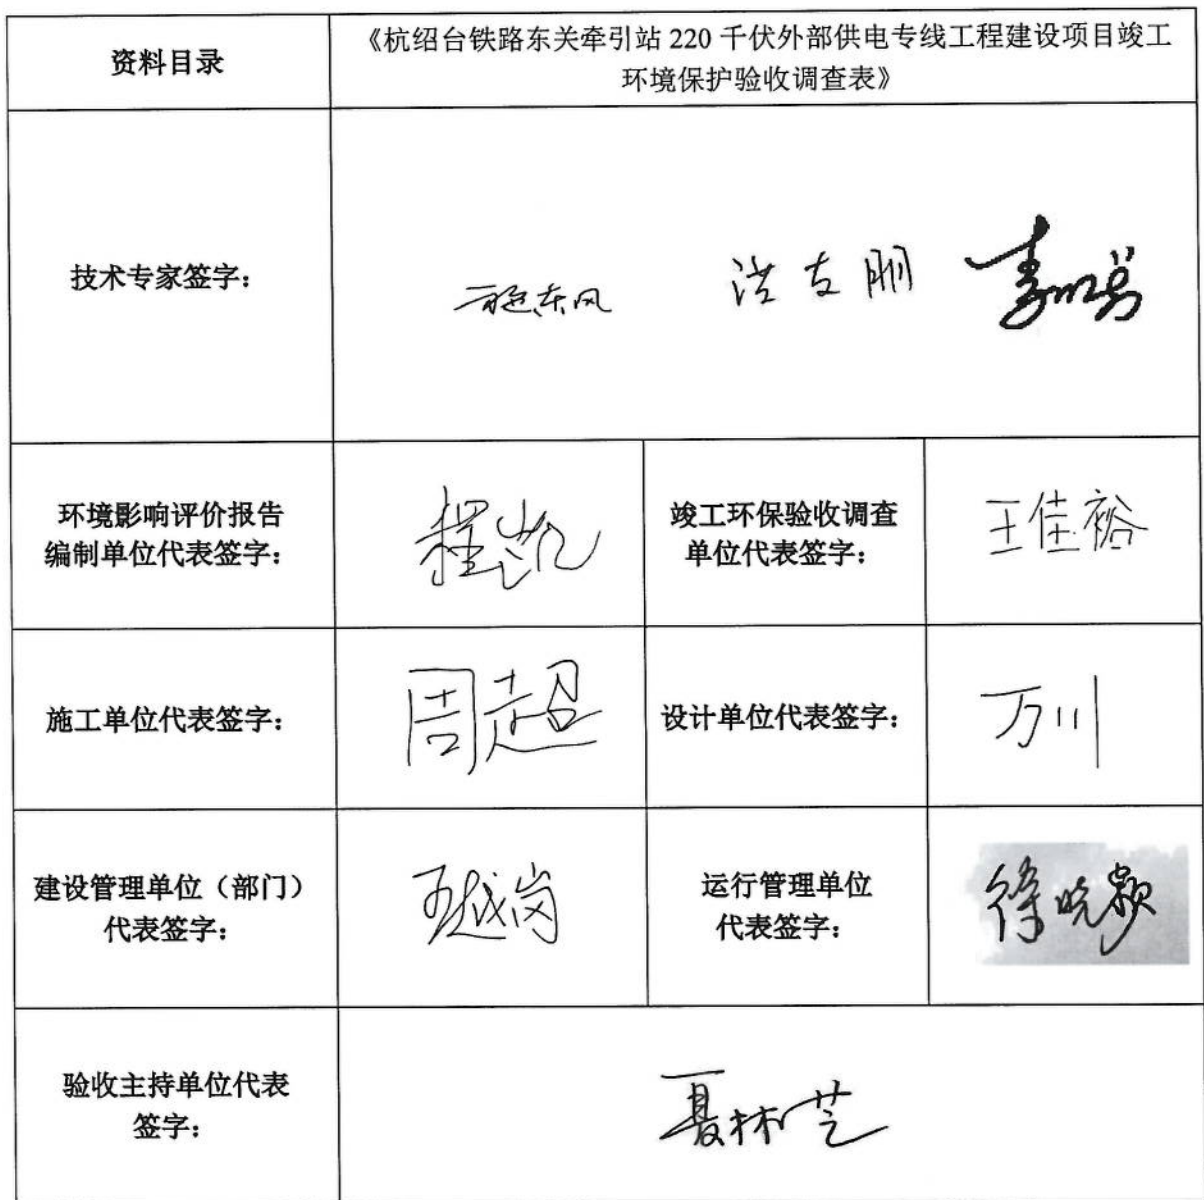 资料目录
《杭绍台铁路东关牵引站 220 千伏外部供电专线工程建设项目竣工
环境保护验收调查表》
技术专家签字：
环境影响评价报告
编制单位代表签字：
程凯
竣工环保验收调查
单位代表签字：
王佳裕
施工单位代表签字：
周超
设计单位代表签字：
万川
建设管理单位（部门）
代表签字：
王越岗
运行管理单位
代表签字：
徐晓颖
验收主持单位代表
签字：
夏林芝